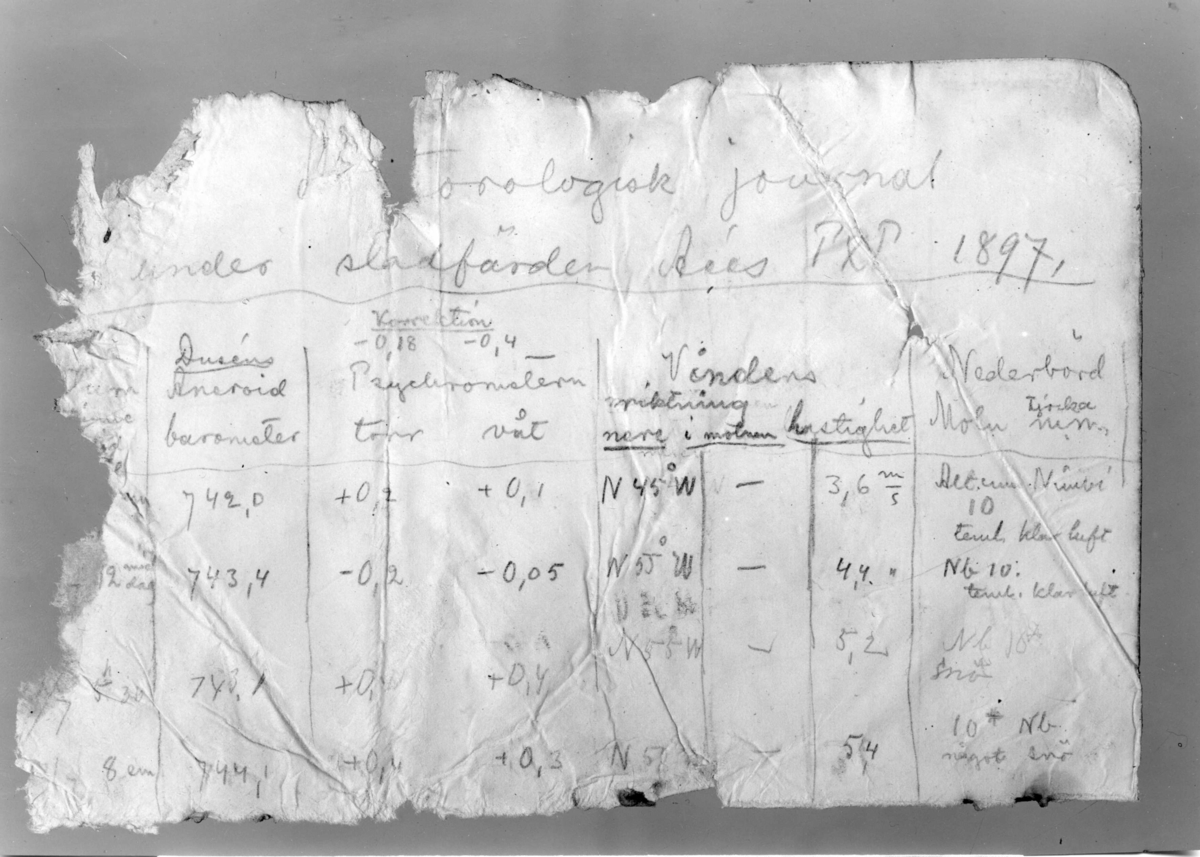 orologisk journal
under slädfärden 1897.
Korrektion
-0,18 -0,4
Duséns Psychrometern Vindens Nederbörd
Aneroid riktning Moln tjocka
barometer torr våt nere i molnen hastighet m.m.
742,0 +0,2 +0,1 N 45° W — 3,6 m/s Alt.cum. Nimbi
10
teml. klar luft
12 middag 743,4 -0,2 -0,05 N 55° W — 4,4 " Nb 10.
teml. klar luft
743,1 +0, +0,4 N 55° W — 5,2 Nb 10
Snö
8 em 744,1 +0,4 +0,3 N 5 — 5,4 10* Nb
något snö